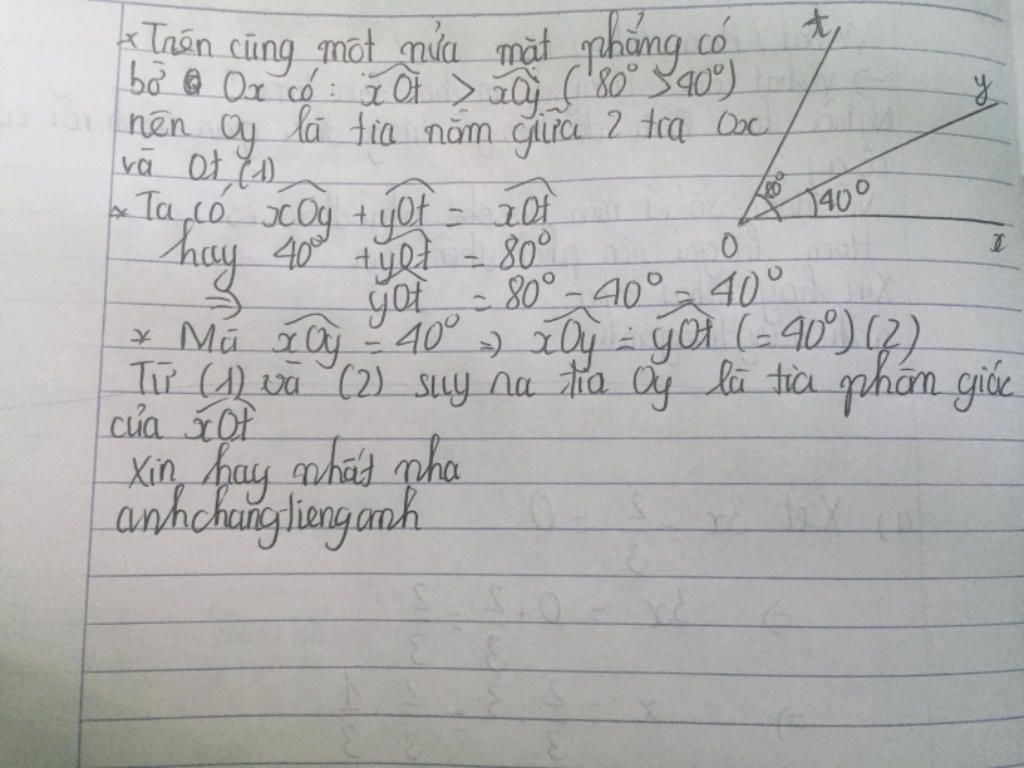 * Trên cùng một nửa mặt phẳng có
bờ Ox có: xOt > xOy (80° > 40°)
nên Oy là tia nằm giữa 2 tia Ox
và Ot (1)
* Ta có xOy + yOt = xOt
hay 40° + yOt = 80°
⇒ yOt = 80° - 40° = 40°
* Mà xOy = 40° ⇒ xOy = yOt (= 40°) (2)
Từ (1) và (2) suy na tia Oy là tia phân giác
của xOt
Xin hay nhất nha
anhchanglienganh
t
y
80°
40°
O
x